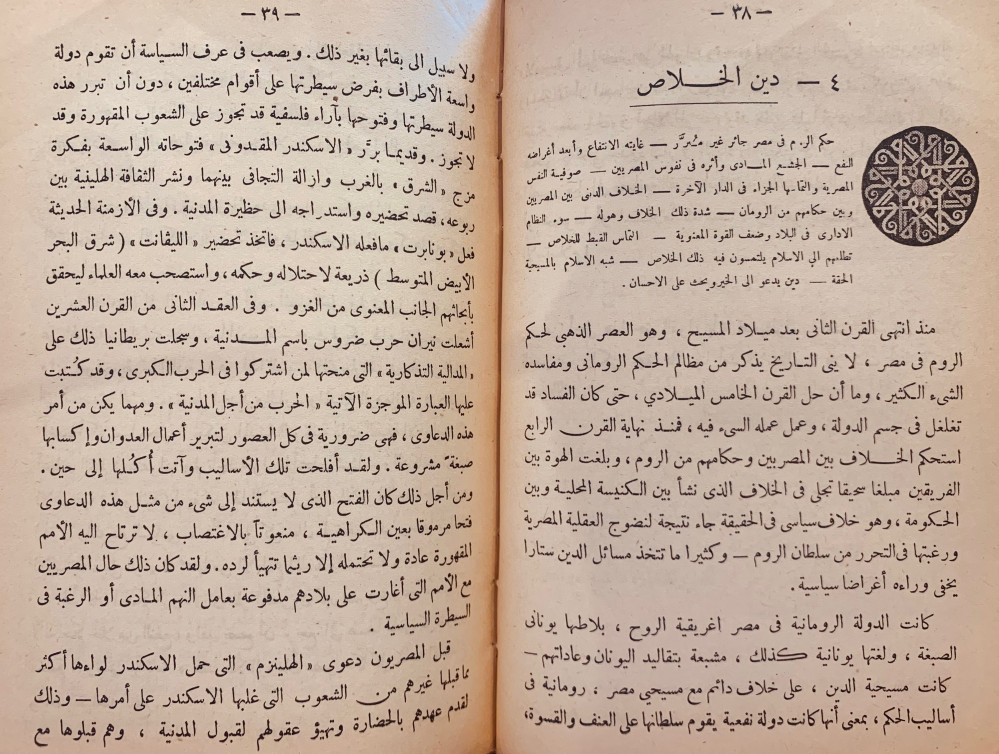 — ٣٨ —
٤ — دين الخـلاص
حكم الروم فى مصر جائر غير مُبرَّر — غايته الانتفاع وأبعد أغراضه
النفع — الجشع المـادى وأثره فى نفوس المصريين — صوفية النفس
المصرية والتماسها الجزاء فى الدار الآخرة — الخـلاف الدينى بين المصريين
وبين حكامهم من الرومان — شدة ذلك الخلاف وهوله — سوء النظام
الادارى فى البلاد وضعف القوة المعنوية — التماس القبط للخلاص —
تطلعهم الى الاسلام يلتمسون فيه ذلك الخلاص — شبه الاسلام بالمسيحية
الحقة — دين يدعو الى الخير ويحث على الاحسان .
منذ انتهى القرن الثانى بعد ميـلاد المسيح ، وهو العصر الذهبى لحكم
الروم فى مصر ، لا ينى التـاريخ يذكر من مظالم الحكم الرومانى ومفاسده
الشىء الـكثير ، وما أن حل القرن الخامس الميـلادي ، حتى كان الفساد قد
تغلغل فى جسم الدولة ، وعمل عمله السىء فيه ، فمنـذ نهاية القرن الرابع
استحكم الخـــلاف بين المصريين وحكامهم من الروم ، وبلغت الهوة بين
الفريقين مبلغا سحيقا تجلى فى الخلاف الذى نشأ بين الـكنيسة المحلية وبين
الحـكومة ، وهو خلاف سياسى فى الحقيقة جاء نتيجة لنضوج العقلية المصرية
ورغبتها فى التحرر من سلطان الروم — وكثيرا ما تتخذ مسائل الدين ستارا
يخفى وراءه أغراضا سياسية .
كانت الدولة الرومانية فى مصر اغريقية الروح ، بلاطها يونانى
الصبغة ، ولغتها يونانية كـذلك ، مشبعة بتقاليد اليونان وعاداتهم —
كانت مسيحية الدين ، على خلاف دائم مع مسيحيي مصر ، رومانية فى
أساليب الحكم ، بمعنى أنها كانت دولة نفعية يقوم سلطانها على العنف والقسوة،
— ٣٩ —
ولا سبيل الى بقائها بغير ذلك . ويصعب فى عرف السياسة أن تقوم دولة
واسعة الأطراف بفرض سيطرتها على أقوام مختلفين ، دون أن تبرر هذه
الدولة سيطرتها وفتوحها بآراء فلسفية قد تجوز على الشعوب المقهورة وقد
لا تجوز . وقديمـا برَّر « الاسكندر المقـدونى » فتوحاته الواسـعة بفـكرة
مزج « الشرق » بالغرب وازالة التجافى بينهما ونشر الثقافة الهلينية بين
ربوعه ، قصد تحضيره واستدراجه الى حظيرة المدنية . وفى الأزمنة الحديثة
فعل « بونابرت » مافعله الاسكندر ، فاتخذ تحضير « الليڤانت » ( شرق البحر
الأبيض المتوسط ) ذريعة لاحتلاله وحكمه ، واستصحب معه العلماء ليحقق
بأبحاثهم الجانب المعنوى من الغزو . وفى العقـد الثانى من القرن العشرين
أشعلت نيران حرب ضروس باسم المـــدنية ، وسجلت بريطانيا ذلك على
« المدالية التذكارية » التى منحتها لمن اشتركوا فى الحرب الكبرى ، وقد كُـتبت
عليها العبارة الموجزة الآتية « الحرب من أجل المدنية » . ومهما يكن من أمر
هذه الدعاوى ، فهى ضرورية فى كل العصور لتبرير أعمال العدوان وإكسابها
صبغة مشروعة . ولقـد أفلحت تلك الأساليب وآتت أُكُـلها إلى حين .
ومن أجل ذلك كان الفتح الذى لا يستند إلى شىء من مثـل هذه الدعاوى
فتحا مرموقا بعين الـكراهيـة ، منعوتاً بالاغتصاب ، لا ترتاح اليه الأمم
المقهورة عادة ولا تحتمله إلا ريثما تتهيأ لرده . ولقد كان ذلك حال المصريين
مع الأمم التى أغارت على بلادهم مدفوعة بعامل النهم المـادى أو الرغبة فى
السيطرة السياسية .
قبل المصريون دعوى « الهلينزم » التى حمل الاسكندر لواءها أكثر
مما قبلها غيرهم من الشعوب التى غلبها الاسكندر على أمرها — وذلك
لقدم عهدهم بالحضارة وتهيؤ عقولهم لقبول المدنية ، وهم قبلوها مع